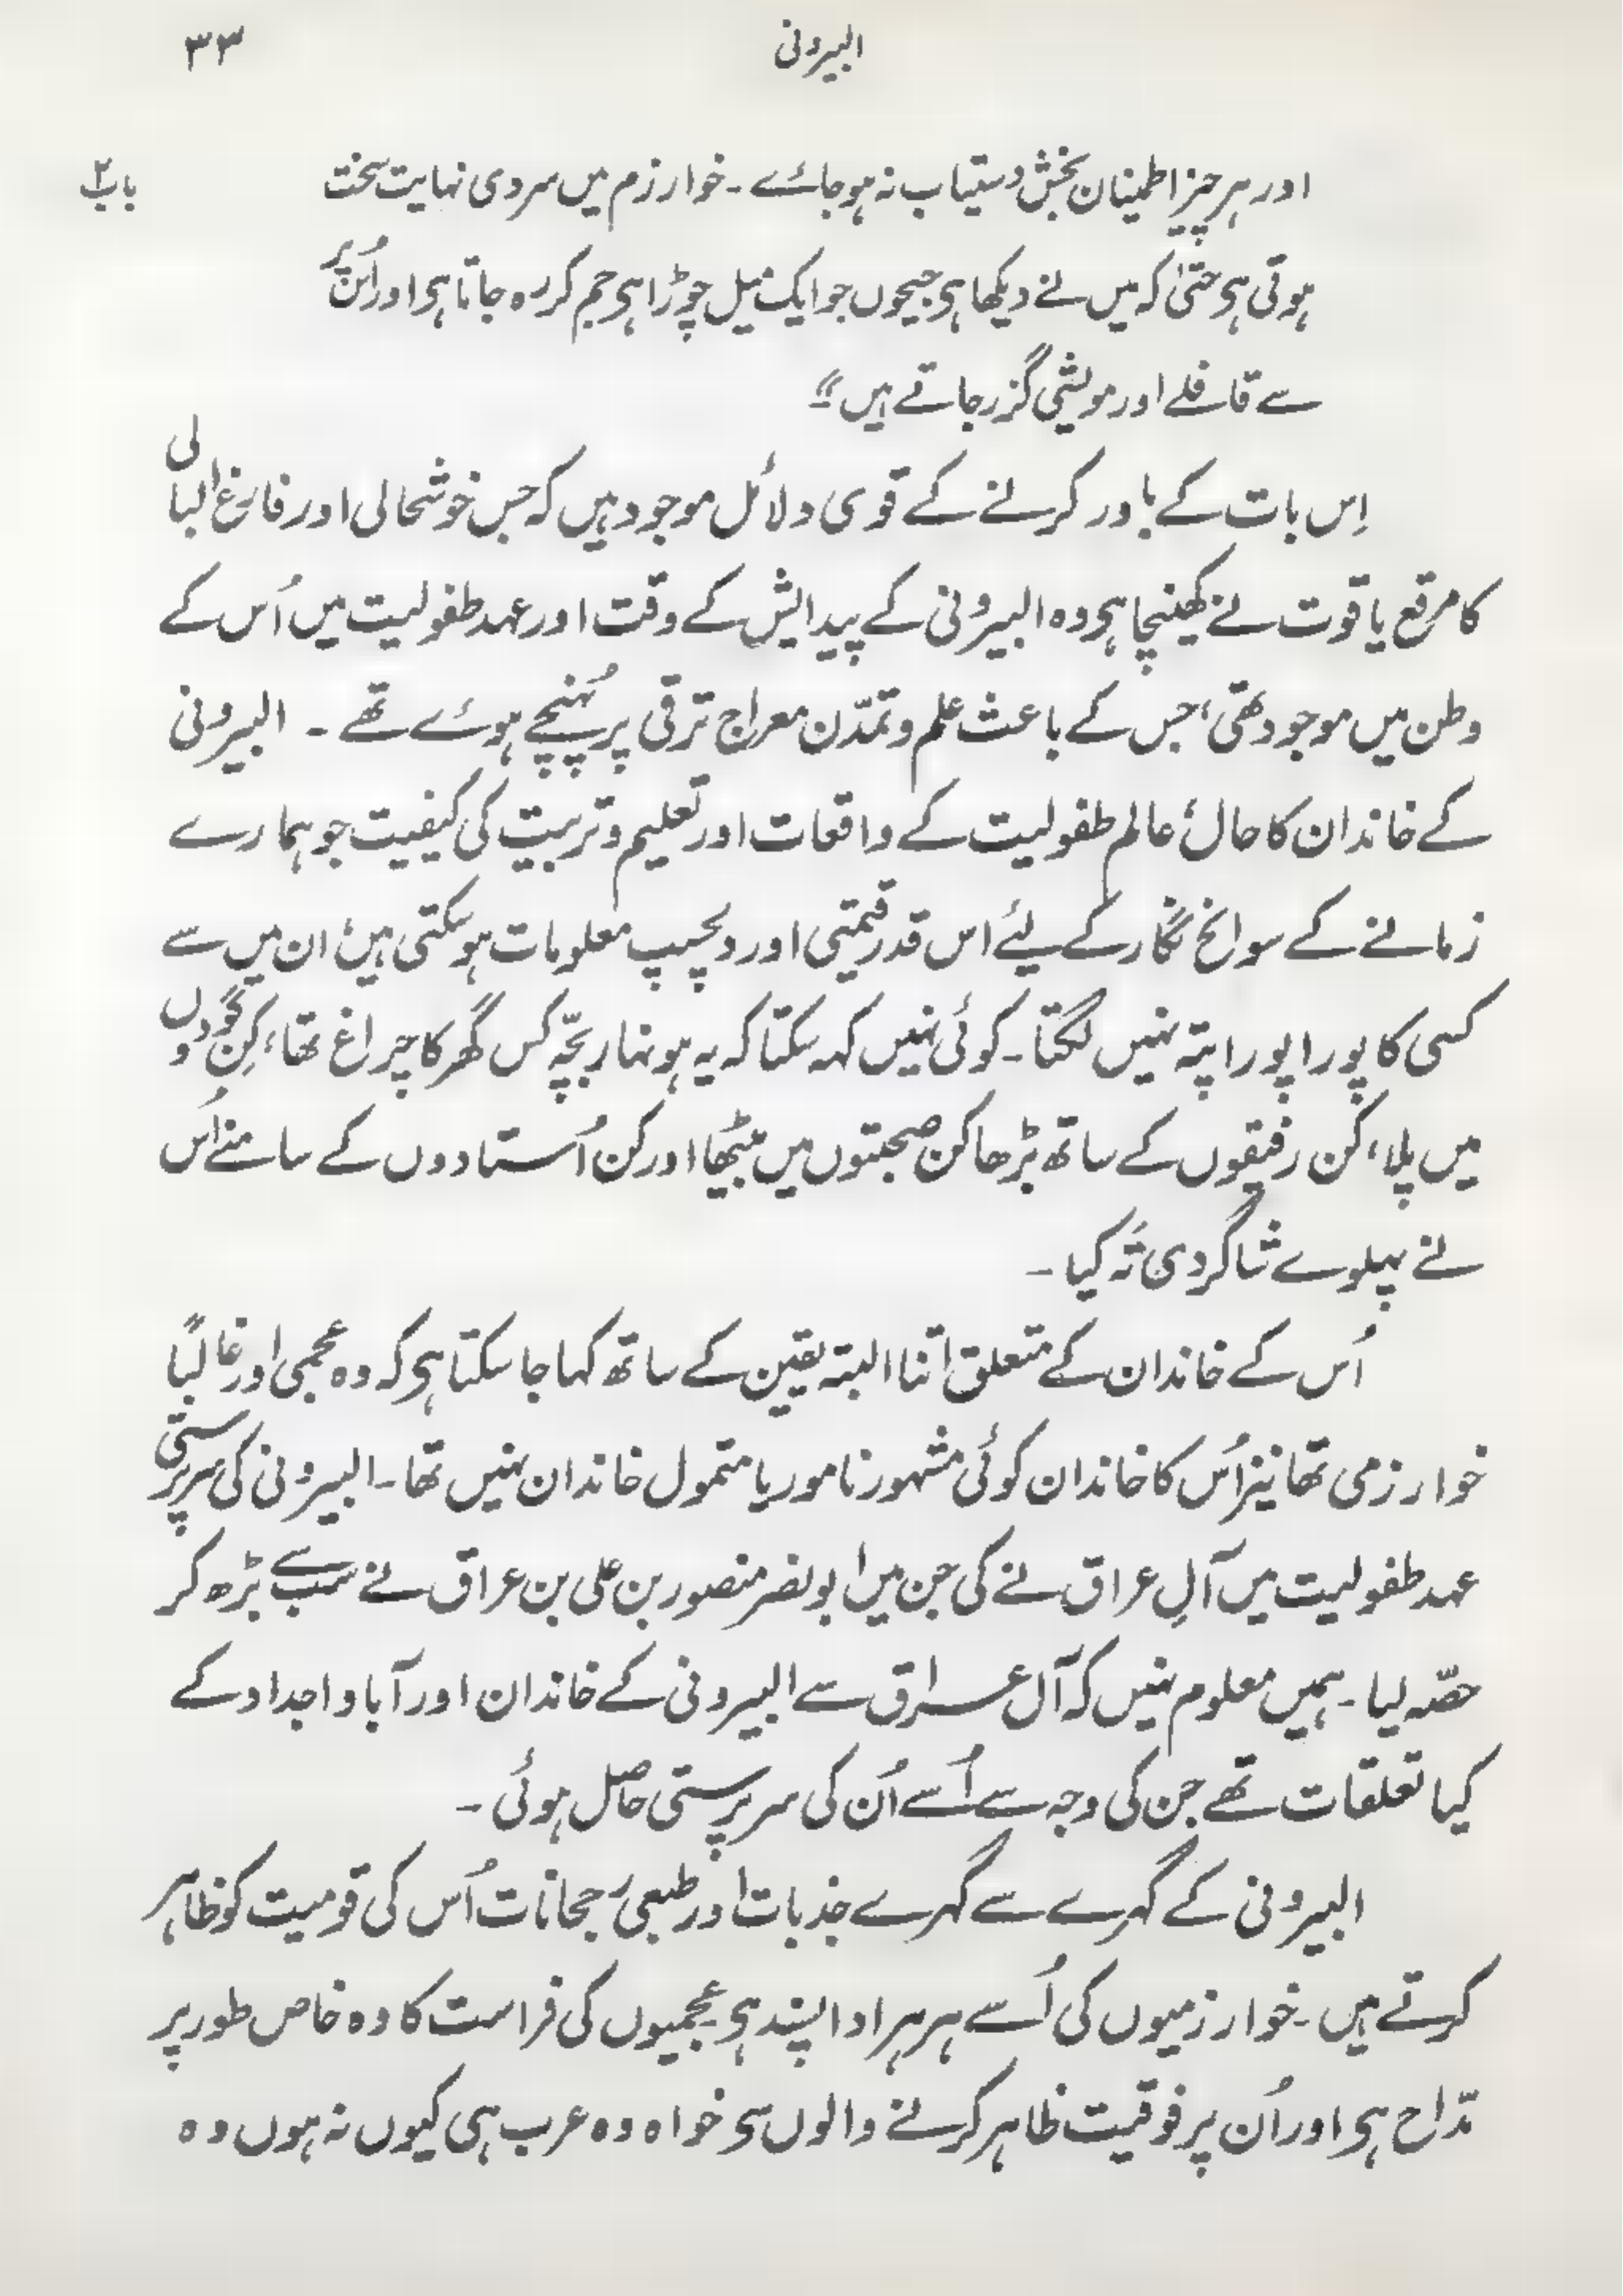 البیرونی ۳۳
باب۲
اور ہر چیز اطمینان بخش دستیاب نہ ہو جائے ۔ خوارزم میں سردی نہایت سخت
ہوتی ہی حتیٰ کہ میں نے دیکھا ہی جیحوں جو ایک میل چوڑا ہی جم کر رہ جاتا ہی اور اُس پر
سے قافلے اور مویشی گزر جاتے ہیں ”
اِس بات کے باور کرنے کے قوی دلائل موجود ہیں کہ جس خوشحالی اور فارغ البالی
کا مرقع یاقوت نے کھینچا ہی وہ البیرونی کے پیدایش کے وقت اور عہد طفولیت میں اُس کے
وطن میں موجود تھی، جس کے باعث علم و تمدّن معراج ترقی پر پہُنچے ہوئے تھے ۔ البیرونی
کے خاندان کا حال، عالم طفولیت کے واقعات اور تعلیم و تربیت کی کیفیت جو ہمارے
زمانے کے سوانح نگار کے لیئے اس قدر قیمتی اور دلچسپ معلومات ہو سکتی ہیں، ان میں سے
کسی کا پورا پورا پتہ نہیں لگتا ۔ کوئی نہیں کہہ سکتا کہ یہ ہونہار بچّہ کس گھر کا چراغ تھا، کِن گودوں
میں پلا، کن رفیقوں کے ساتھ بڑھا کن صحبتوں میں بیٹھا اور کن اُستادوں کے سامنے اُس
نے پہلوے شاگردی تَہ کیا ۔
اُس کے خاندان کے متعلق اتنا البتہ یقین کے ساتھ کہا جا سکتا ہی کہ وہ عجمی اور غالبًا
خوارزمی تھا نیز اُس کا خاندان کوئی مشہور نامور یا متمول خاندان نہیں تھا ۔ البیرونی کی سرپرستی
عہد طفولیت میں آلِ عراق نے کی جن میں ابو نصر منصور بن علی بن عراق نے سب سے بڑھ کر
حصّہ لیا ۔ ہمیں معلوم نہیں کہ آل عراق سے البیرونی کے خاندان اور آبا و اجداد کے
کیا تعلقات تھے جن کی وجہ سے اُسے اُن کی سرپرستی حاصل ہوئی ۔
البیرونی کے گہرے سے گہرے جذبات اور طبعی رُجحانات اُس کی قومیت کو ظاہر
کرتے ہیں ۔ خوارزمیوں کی اُسے ہر ہر ادا پسند ہی ۔ عجمیوں کی فراست کا وہ خاص طور پر
مدّاح ہی اور اُن پر فوقیت ظاہر کرنے والوں سی خواہ وہ عرب ہی کیوں نہ ہوں وہ